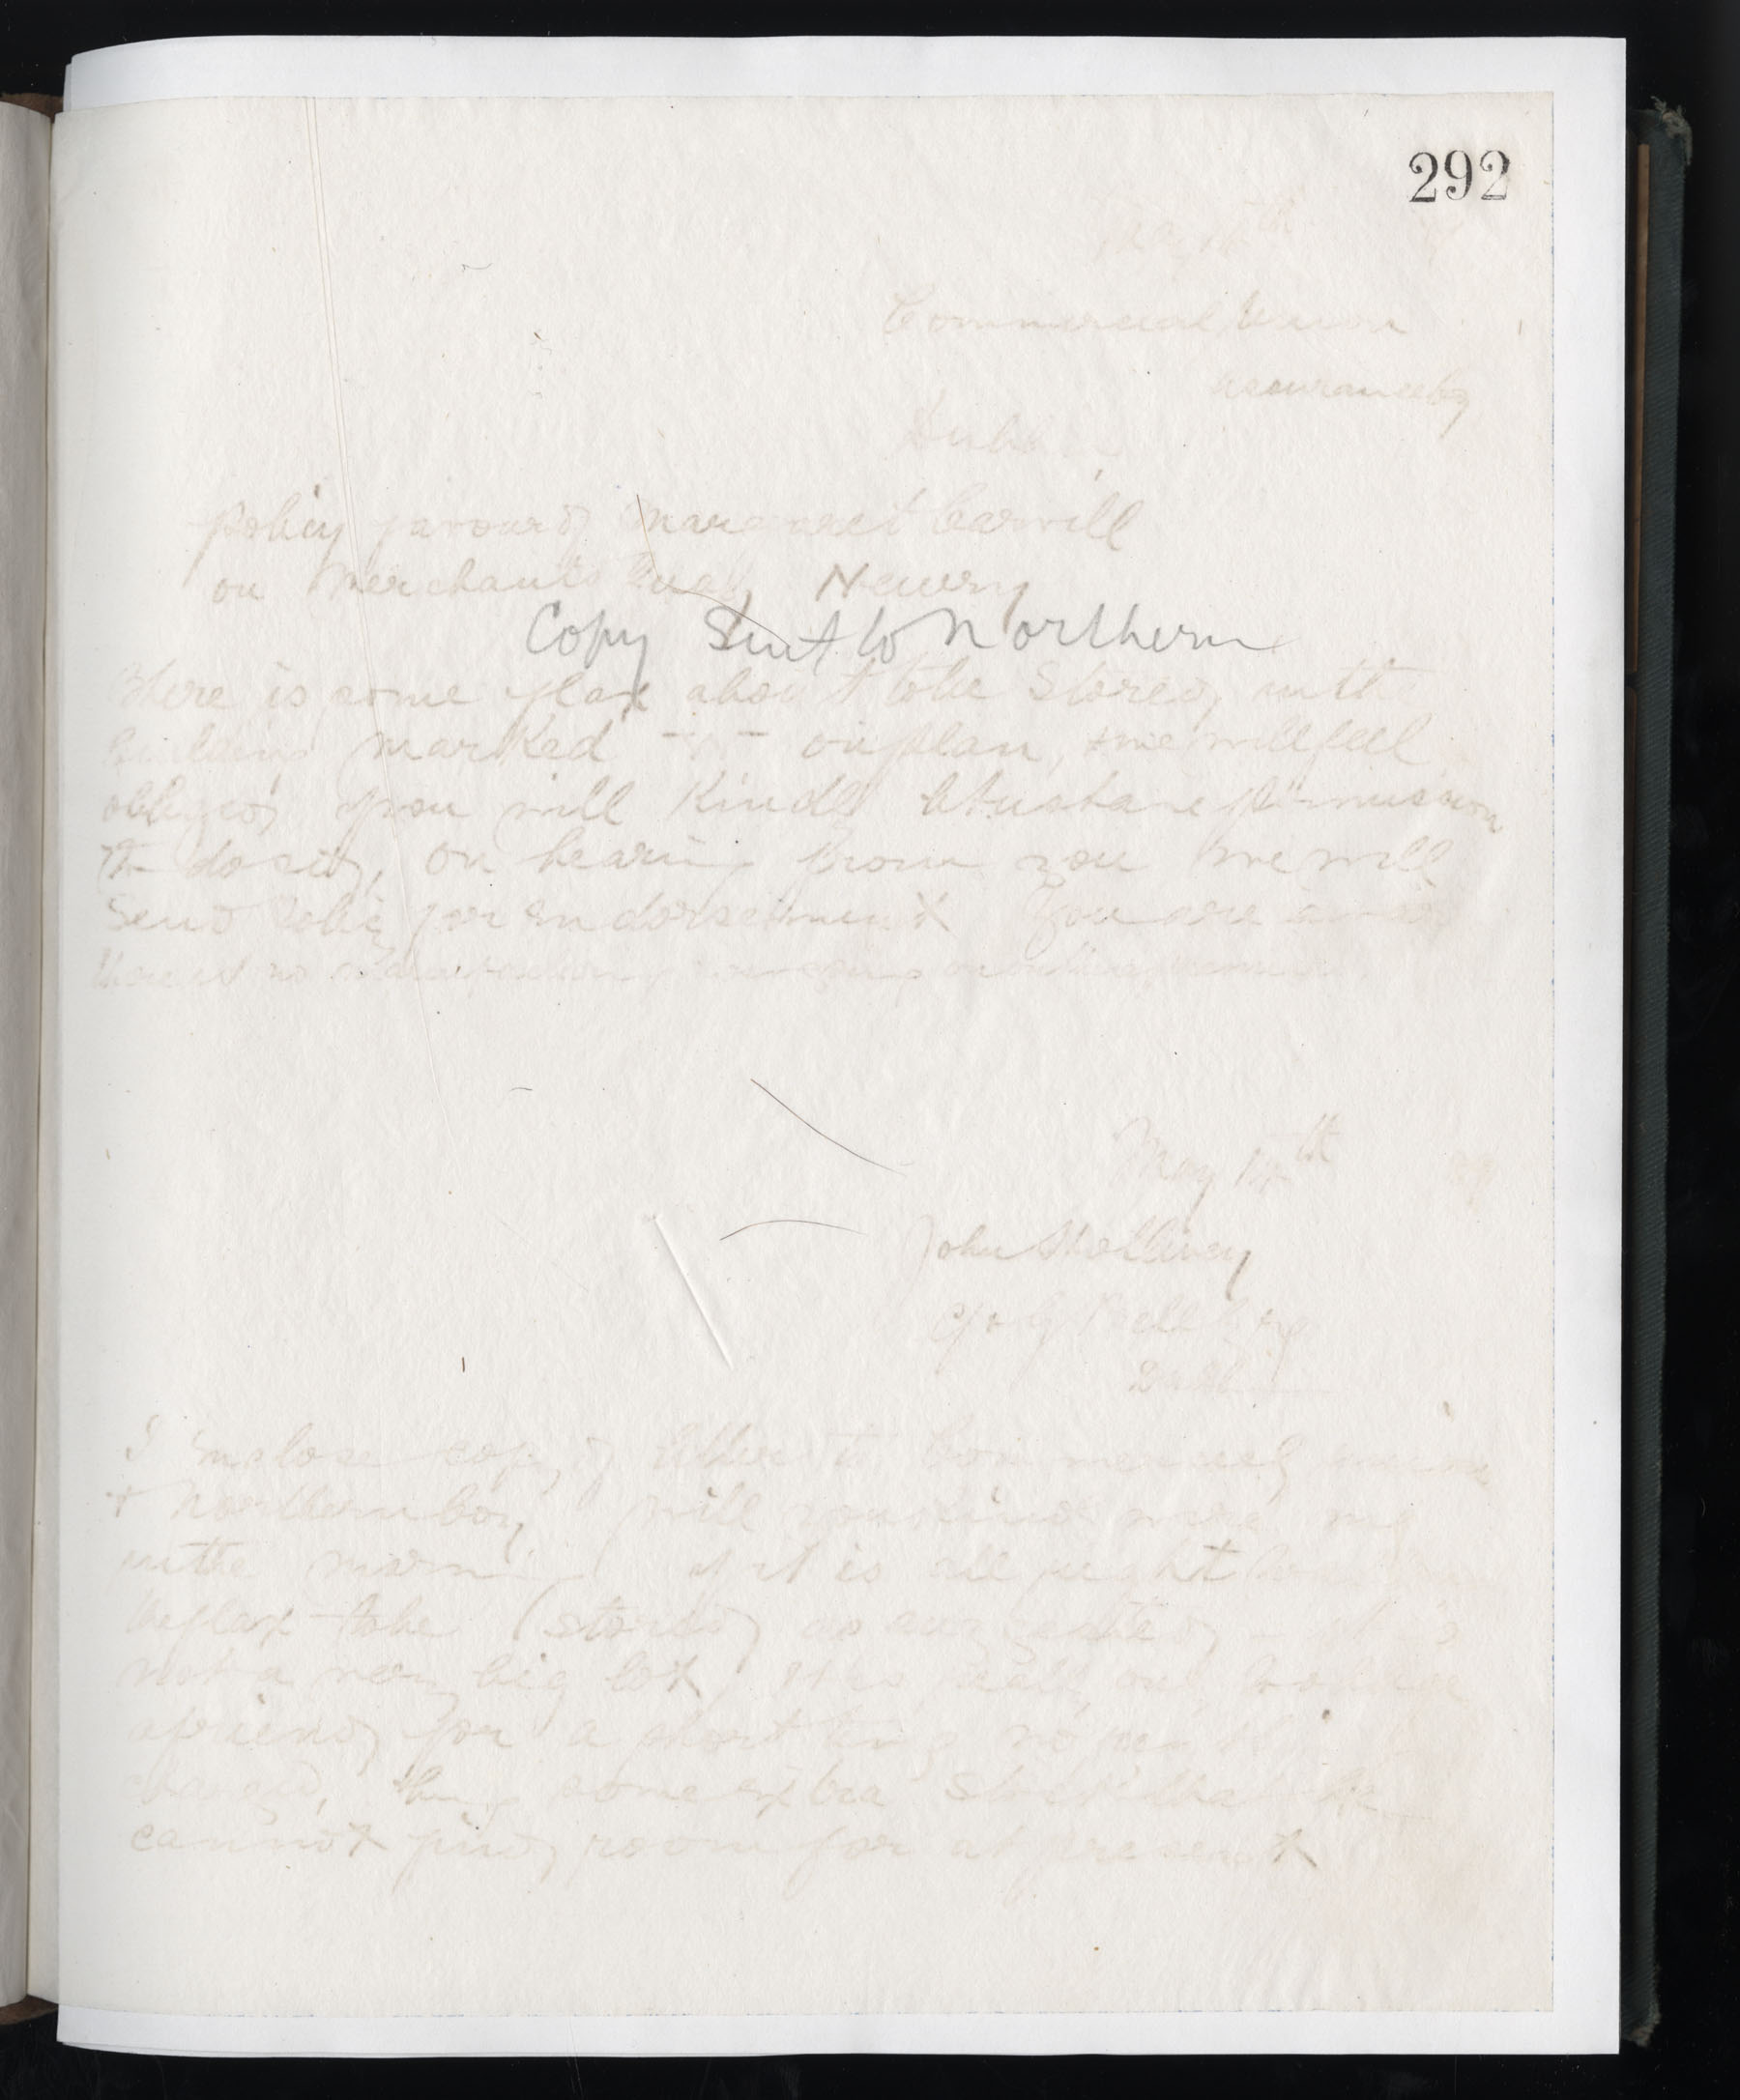 292
May 14th
Commercial Union
Assurance Coy
Dublin
Policy favour of Margaret Carvill
on Merchants Quay Newry
Copy Sent to Northern
There is some flax about to be Stored in the
building marked on plan, & we will feel
obliged you will Kindly let us have permission
to do so, on hearing from you we will
Send Policy for Endorsement You are aware
there is no
May 14th 89
John
c/o Bell & Coy
Dublin
I enclose copy of letter to Commercial Union
& Northern Coy will you kindly wire me
in the morning if it is all right
the flax to be stored as suggested - it is
not a very big lot, it is really only to oblige
a friend for a short time no
charged, being some extra Stock that he
cannot find room for at present